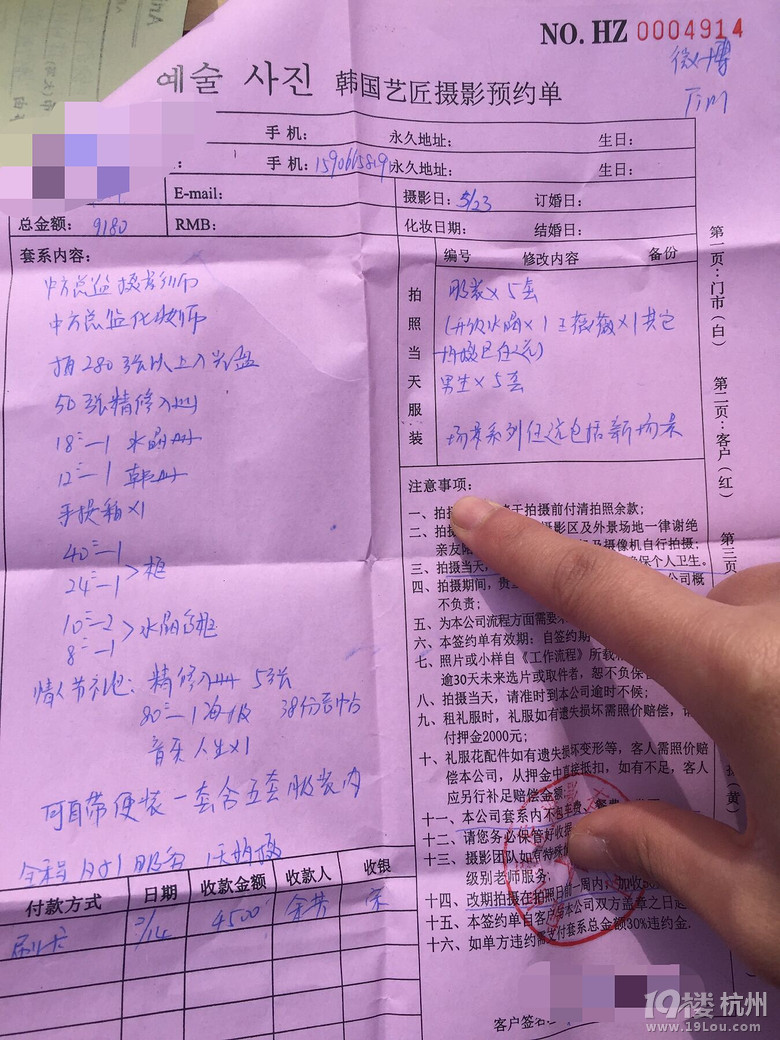 NO. HZ 0004914
微博
Tim
예술 사진 韩国艺匠摄影预约单
手机: 永久地址: 生日:
: 手机: 永久地址: 生日:
E-mail: 摄影日: 5/23 订婚日:
总金额: 9180 RMB: 化妆日期: 结婚日:
套系内容:
中方总监摄影师
中方总监化妆师
拍280张以上入光盘
50张精修入册
18"—1 水晶册
12"—1 韩册
手提箱×1
40"—1
24"—1 >框
10"—2
8"—1 >水晶
情人节礼: 精修入册 5张
80"—1海报 38份
音乐人生×1
可自带便装一套含五套服装内
全程 服务
编号 修改内容 备份
拍照当天服装
服装×5套
水晶×1 薇薇×1其它
任选)
男生×5套
场景系列任选包括新场景
注意事项:
一、拍摄 于拍摄前付清拍照余款;
二、拍 摄影区及外景场地一律谢绝
亲友 及摄像机自行拍摄;
三、拍摄当天, 确保个人卫生。
四、拍摄期间,贵 公司概
不负责;
五、为本公司流程方面需要
六、本签约单有效期:自签约期
七、照片或小样自《工作流程》所载
逾30天未来选片或取件者,恕不负保管
八、拍摄当天,请准时到本公司逾时不候;
九、租礼服时,礼服如有遗失损坏需照价赔偿,请
付押金2000元;
十、礼服花配件如有遗失损坏变形等,客人需照价赔
偿本公司,从押金中直接抵扣,如有不足,客人
应另行补足赔偿金额;
十一、本公司套系内不包车费、餐费
十二、请您务必保管好收据
十三、摄影团队如有特殊
级别老师服务;
十四、改期拍摄在拍照日前一周内, 加收
十五、本签约单自客户与本公司双方盖章之日起
十六、如单方违约需支付套系总金额30%违约金.
客户签名:
第一页:门市(白) 第二页:客户(红) 第三页 (黄)
付款方式 日期 收款金额 收款人 收银
刷卡 2/14 4500
19楼 杭州
www.19Lou.com